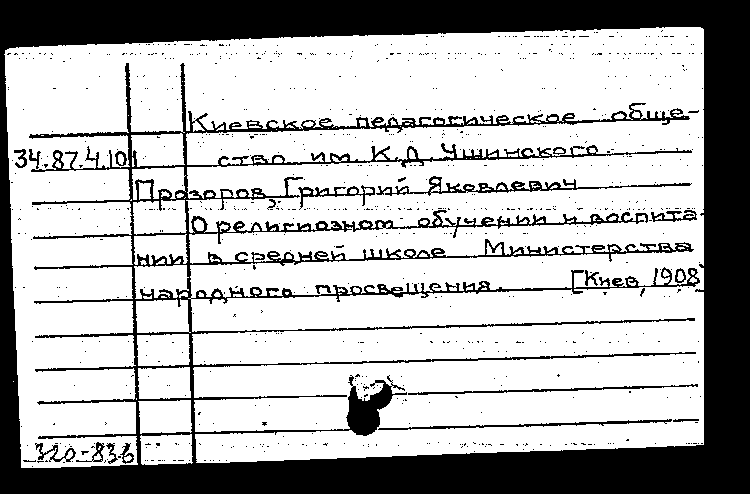 Киевское педагогическое обще-
34.87.4.101 ство им. К.Д. Ушинского.
Прозоров, Григорий Яковлевич
О религиозном обучении и воспита-
нии в средней школе Министерства
народного просвещения. [Киев, 1908]
320-836